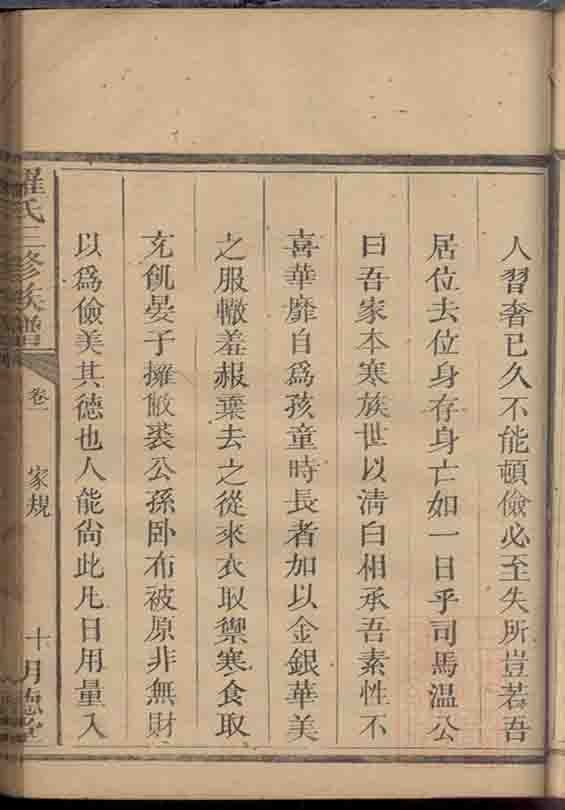 人習奢已久不能頓儉必至失所豈若吾
居位去位身存身亡如一日乎司馬温公
曰吾家本寒族世以清白相承吾素性不
喜華靡自為孩童時長者加以金銀華美
之服輙羞赧棄去之從來衣取禦寒食取
充飢晏子擁敝裘公孫卧布被原非無財
以為儉美其德也人能尙此凡日用量入
羅氏三修族譜
卷一
家規
十